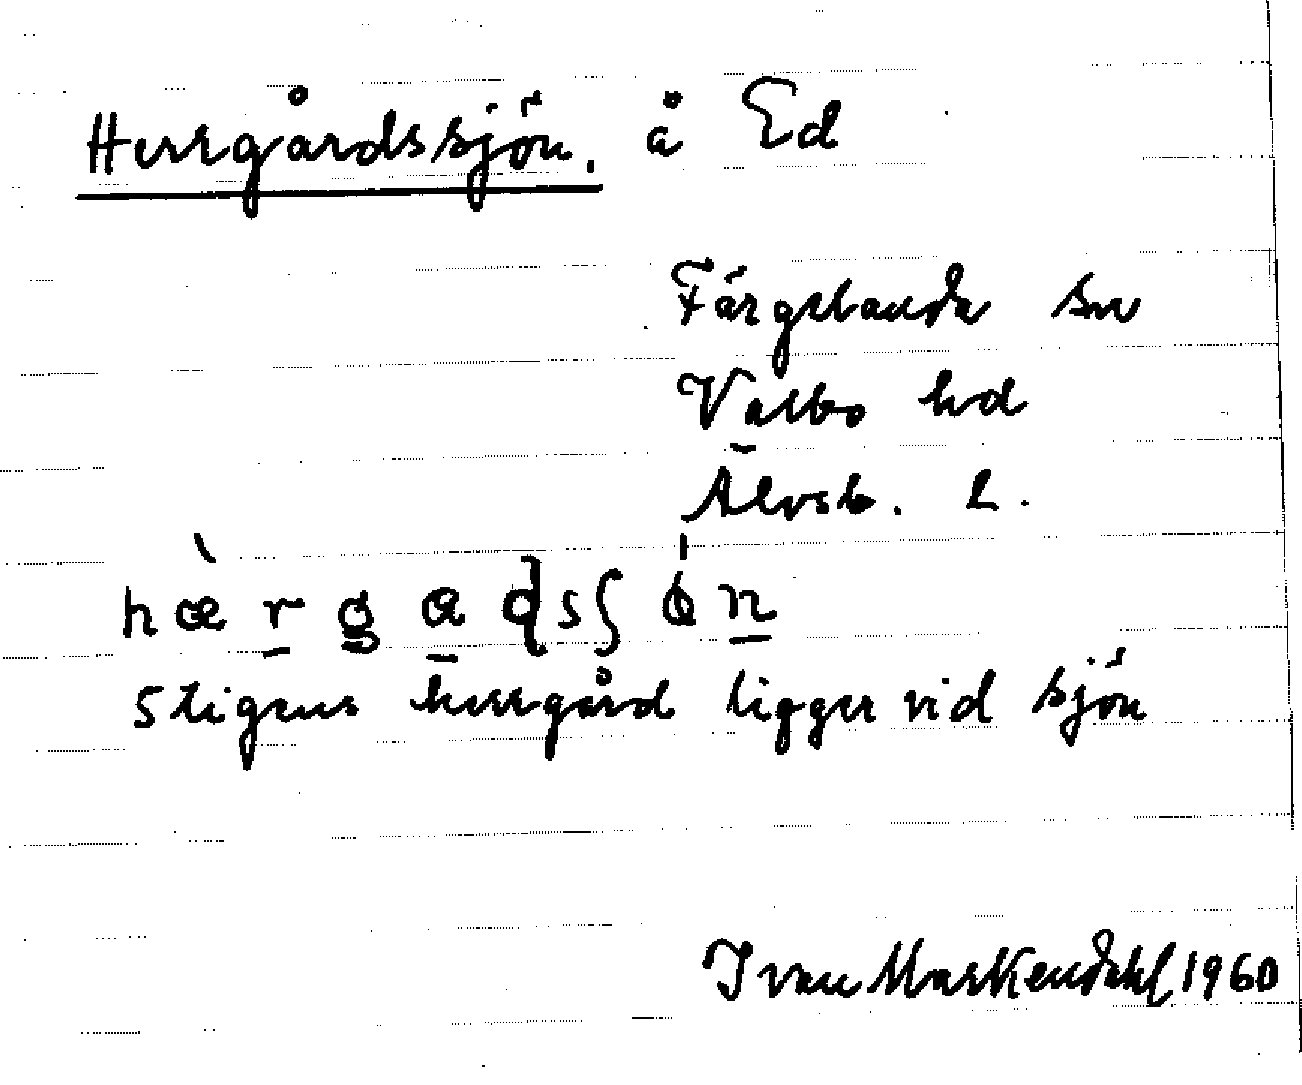 Herrgårdssjön. å Ed
Färgelanda sn
Valbo hd
Älvsb. l.
hærgads∫ön
Stigens herrgård ligger vid sjön
Ivan Markendahl 1960